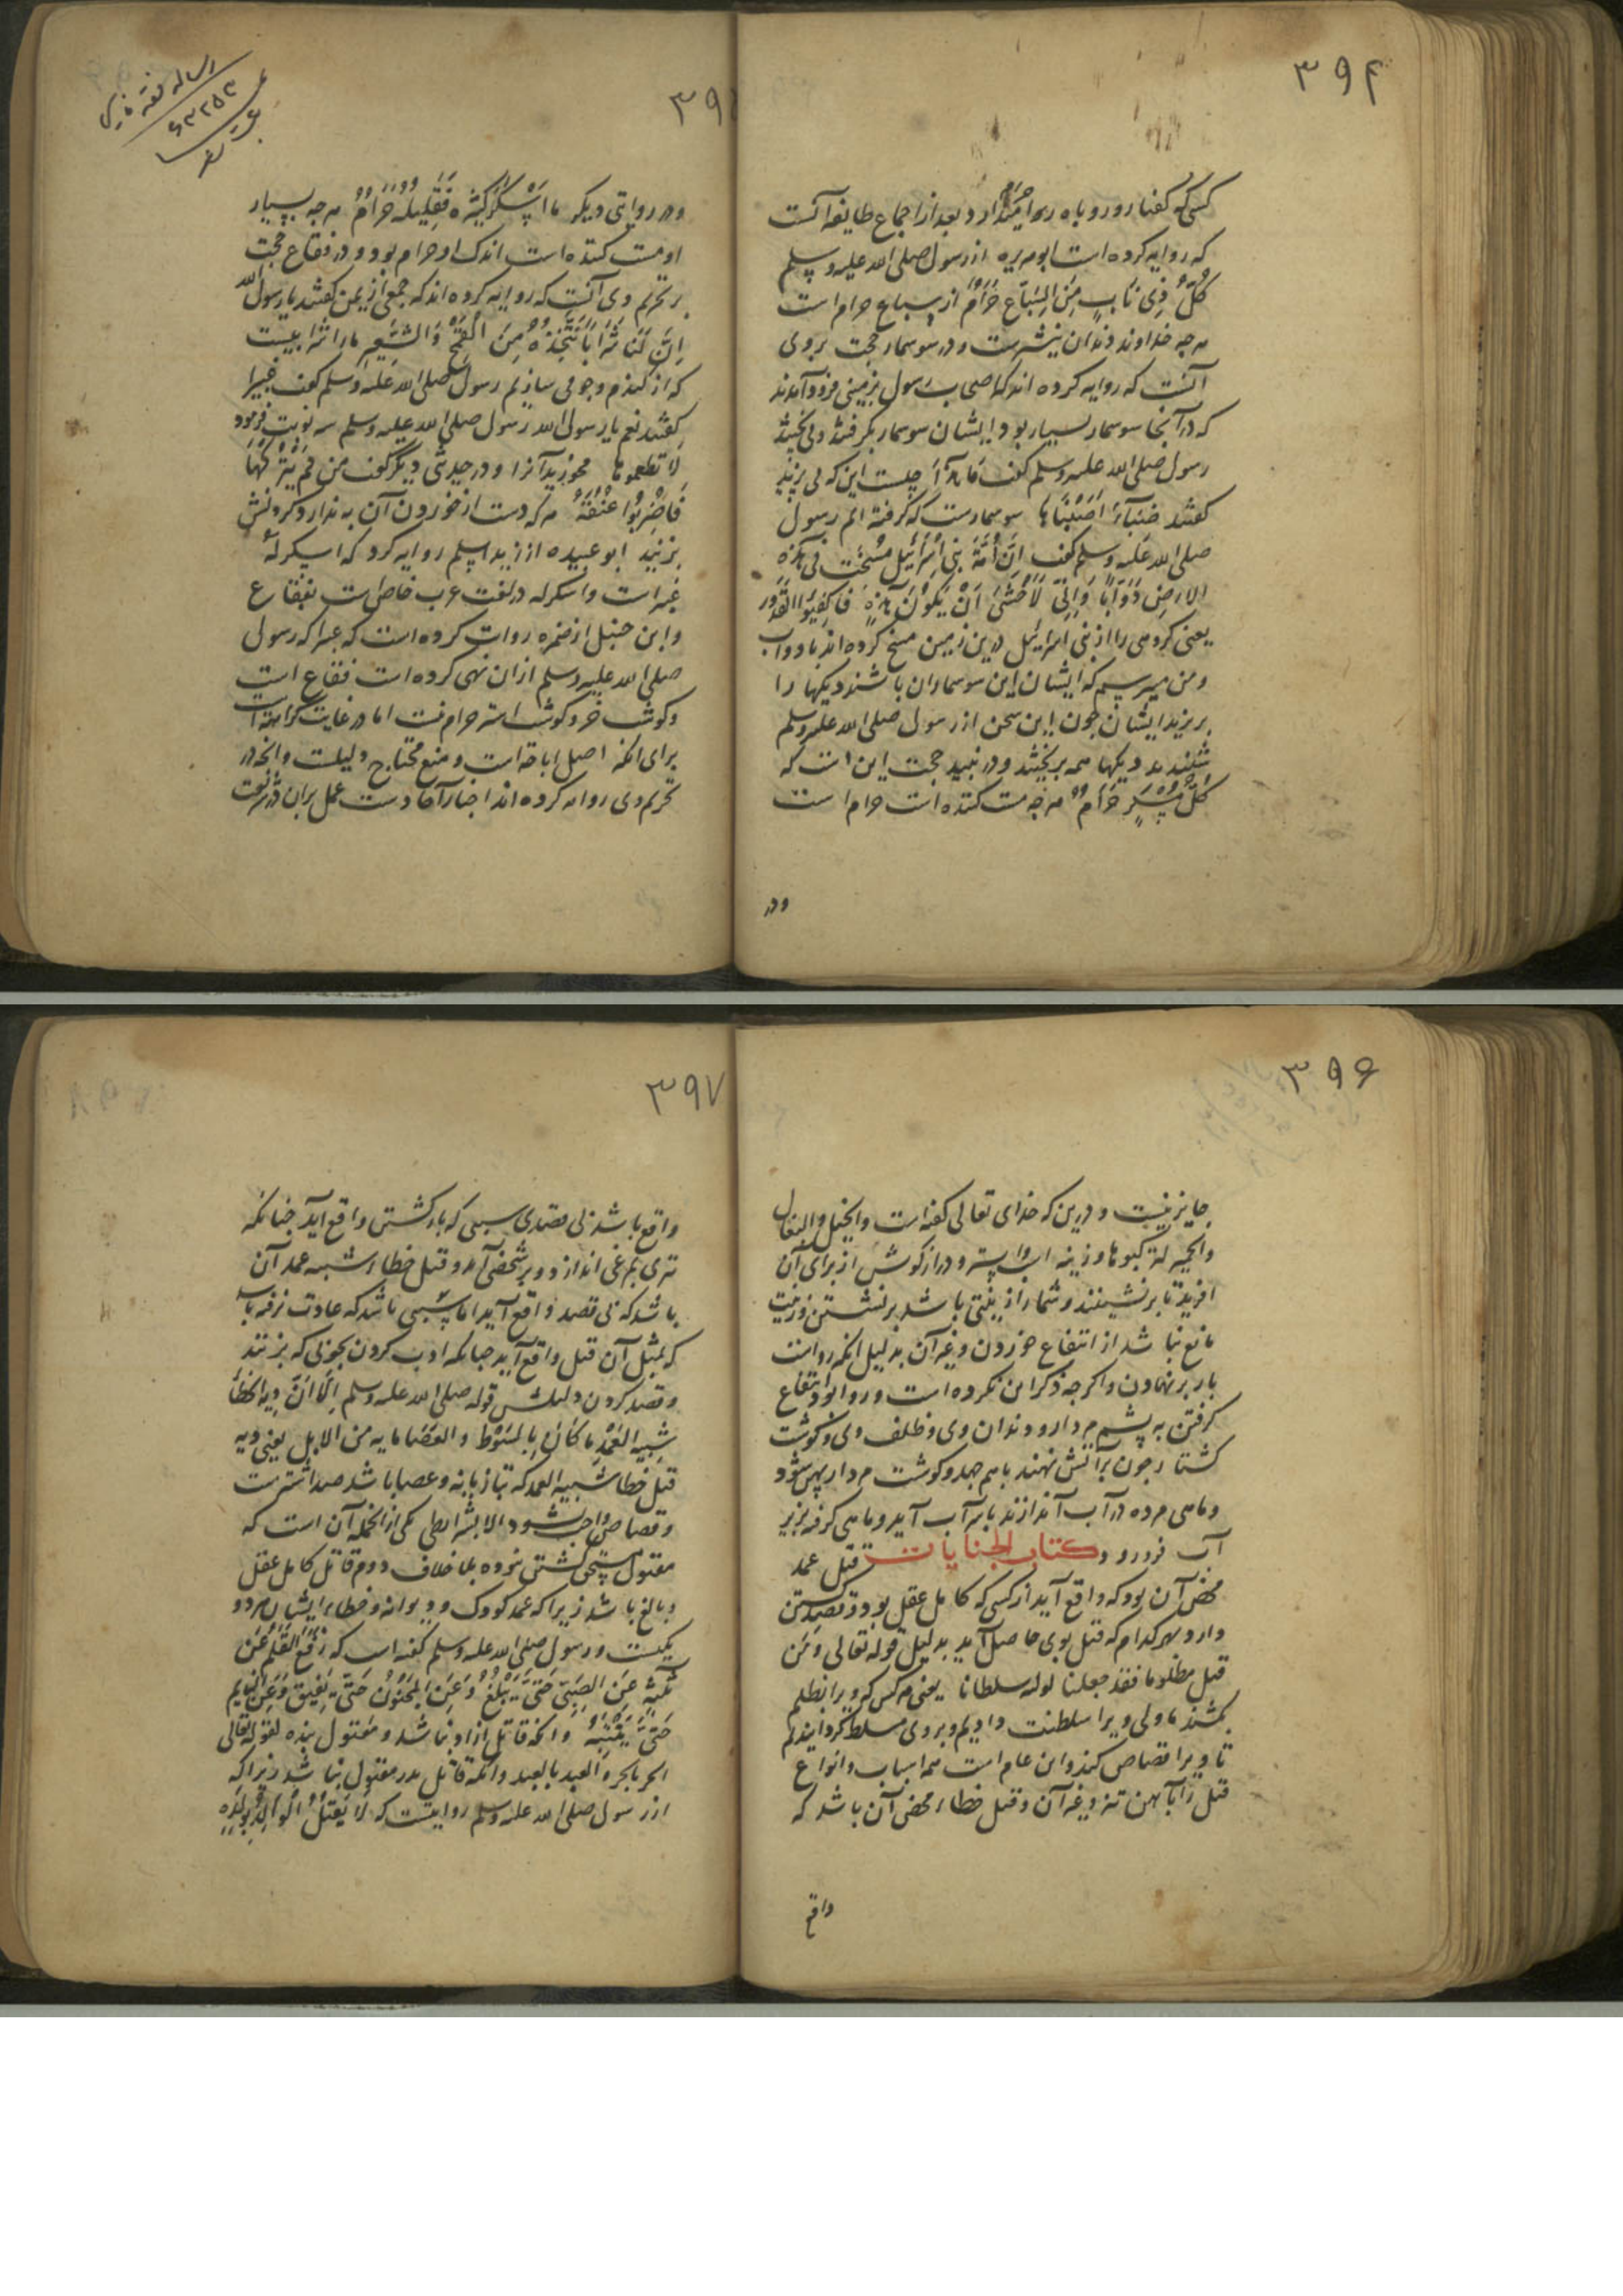 ۳۹۴
کسی که کفتار و روباه را حرام ندارد و بعد از اجماع طایفه آنست
که روایه کرده است ابوهریره از رسول صلی الله علیه وسلم
کُلُّ ذِی نَابٍ مِنَ السِّبَاعِ حَرَامٌ از سباع حرام است
هرجه خداوند دندان نیشرست و در سوسمار حجت بروی
آنست که روایه کرده اند که اصحاب رسول بزمینی فرود آمدند
که در آنجا سوسمار بسیار بود ایشان سوسمار بگرفتند و می پختند
رسول صلی الله علیه وسلم گفت ما هذا چیست این که می پزید
گفتند ضبابا اصبناها سوسمارست که گرفته ایم رسول
صلی الله علیه وسلم گفت اِنَّ اُمَّةً بنی اِسْرَائیل مُسِخَت فی هذه
الارضِ دَوَابّاً وَاِنّی لَاَخْشَی اَنْ یَکُونَ هذِهِ فاکفِئوا القدور
یعنی کروهی را از بنی اسرائیل درین زمین مسخ کرده اند با دواب
و من میرسم که ایشان این سوسماران باشند دیکها را
بریزید ایشان جون این سخن از رسول صلی الله علیه وسلم
شنیدند دیکها همه بریختند و در نبید حجت این است که
کُلُّ مُسْکِرٍ حَرَامٌ هرجه مست کننده است حرام است
ودر
رساله فقه فارسی
۶۳۲۵۳
و در روایتی دیگر ما اَسْکَرَ کَثِیرُه فَقَلِیلُهُ حَرَامٌ هرجه بسیار
او مست کننده است اندک او حرام بود و در فقاع حجت
بر تحریم وی آنست که روایه کرده اند که جمعی از یمن گفتند یا رسول الله
اِنَّ لَنَا شَرَاباً نَتَّخِذُهُ مِنَ القَمْحِ وَالشَّعِیرِ ما را شرابیست
که از کندم و جو می سازیم رسول صلی الله علیه وسلم گفت غبیرا
گفتند نعم یا رسول الله رسول صلی الله علیه وسلم سه نوبت فرمود
لا تطعموها مخورید آنرا و در حدیثی دیگر گفت من لم یترکها
فَاضْرِبُوا عُنُقَهُ هرکه دست از خوردن آن به ندارد کردنش
بزنید ابو عبیده از زید اسلم روایه کرد که اسکرکه
غبیراست و اسکرکه در لغت عرب خاص است بفقاع
و ابن حنبل از ضمره روایت کرده است که غبیرا که رسول
صلی الله علیه وسلم ازان نهی کرده است فقاع است
و کوشت خر و کوشت استر حرام نیست اما در غایت کراهت است
برای انکه اصل اباحه است و منع محتاج دلیلست و انجه در
تحریم وی روایه کرده اند اخبار آحادست عمل بران در شریعت
۳۹۶
جایز نیست و درین که خدای تعالی گفته است والخیل والبغال
والحمیر لترکبوها وزینه اسب و استر و درازکوش از برای آن
افرید تا برنشینند و شما را زینتی باشد برنشستن و زینت
مانع نباشد از انتفاع خوردن و غیر آن بدلیل انکه رواست
بار برنهادن و اکرجه ذکر این نکرده است و روا بود انتفاع
گرفتن به پشم مردار و دندان وی و ظلف وی و کوشت
کشتار جون بر آتش نهند باهم جهد و کوشت مردار پهن شود
و ماهی مرده در آب اندازند بر سر آب آید و ماهی کرفه بزیر
آب فرو رود کتاب الجنایات قتل عمد
محض آن بود که واقع آید از کسی که کامل عقل بود و قصد کشتن
دارد بهر کدام که قتل بوی حاصل آید بدلیل قوله تعالی ومن
قتل مظلوما فقد جعلنا لولیه سلطانا یعنی هرکس که ویرا بظلم
بکشند ما ولی ویرا سلطنت دادیم و بروی مسلط کردانیدیم
تا ویرا قصاص کند و این عام است همه اسباب و انواع
قتل را بآهن تیز و غیر آن و قتل خطاء محض آن باشد که
واقع
۳۹۷
واقع باشد بی قصدی بسببی که بازکشتن واقع آید جنانکه
تیری بمرغی اندازد و بر شخصی آید و قتل خطاء شبیه عمد آن
باشد که بی قصد واقع آید اما بسببی باشد که عادت نرفته باشد
که بمثل آن قتل واقع آید جنانکه ادب کردن بجوبی که بزنند
و قصد کردن دلیلش قوله صلی الله علیه وسلم اَلا اِنَّ دِیةَ الخطأ
شِبهِ العَمْدِ ما کَانَ بِالسَّوْطِ والعَصَا مایه من الابل یعنی دیه
قتل خطا شبیه العمد که بتازیانه و عصا باشد صد اشترست
و قصاص واجب نشود الا بشرایطی یکی از انجمله آن است که
مقتول مستحق کشتن نبوده بلا خلاف دوم قاتل کامل عقل
و بالغ باشد زیرا که عمد کودک و دیوانه و خطاء ایشان هر دو
یکیست و رسول صلی الله علیه وسلم گفته است که رُفِعَ القَلَمُ عَن
ثَلَثَةٍ عَنِ الصَّبِیِّ حَتَّی یَبْلُغَ وَعَنِ المَجْنُونِ حَتَّی یُفِیقَ وَعَنِ النَّایِمِ
حَتَّی یَنْتَبِهَ و انکه قاتل ازاد نباشد و مقتول بنده لقوله تعالی
الحر بالحر والعبد بالعبد و انکه قاتل پدر مقتول نباشد زیرا که
از رسول صلی الله علیه وسلم روایتست که لا یُقتَلُ الْوَالِدُ بِوَلَدِهِ